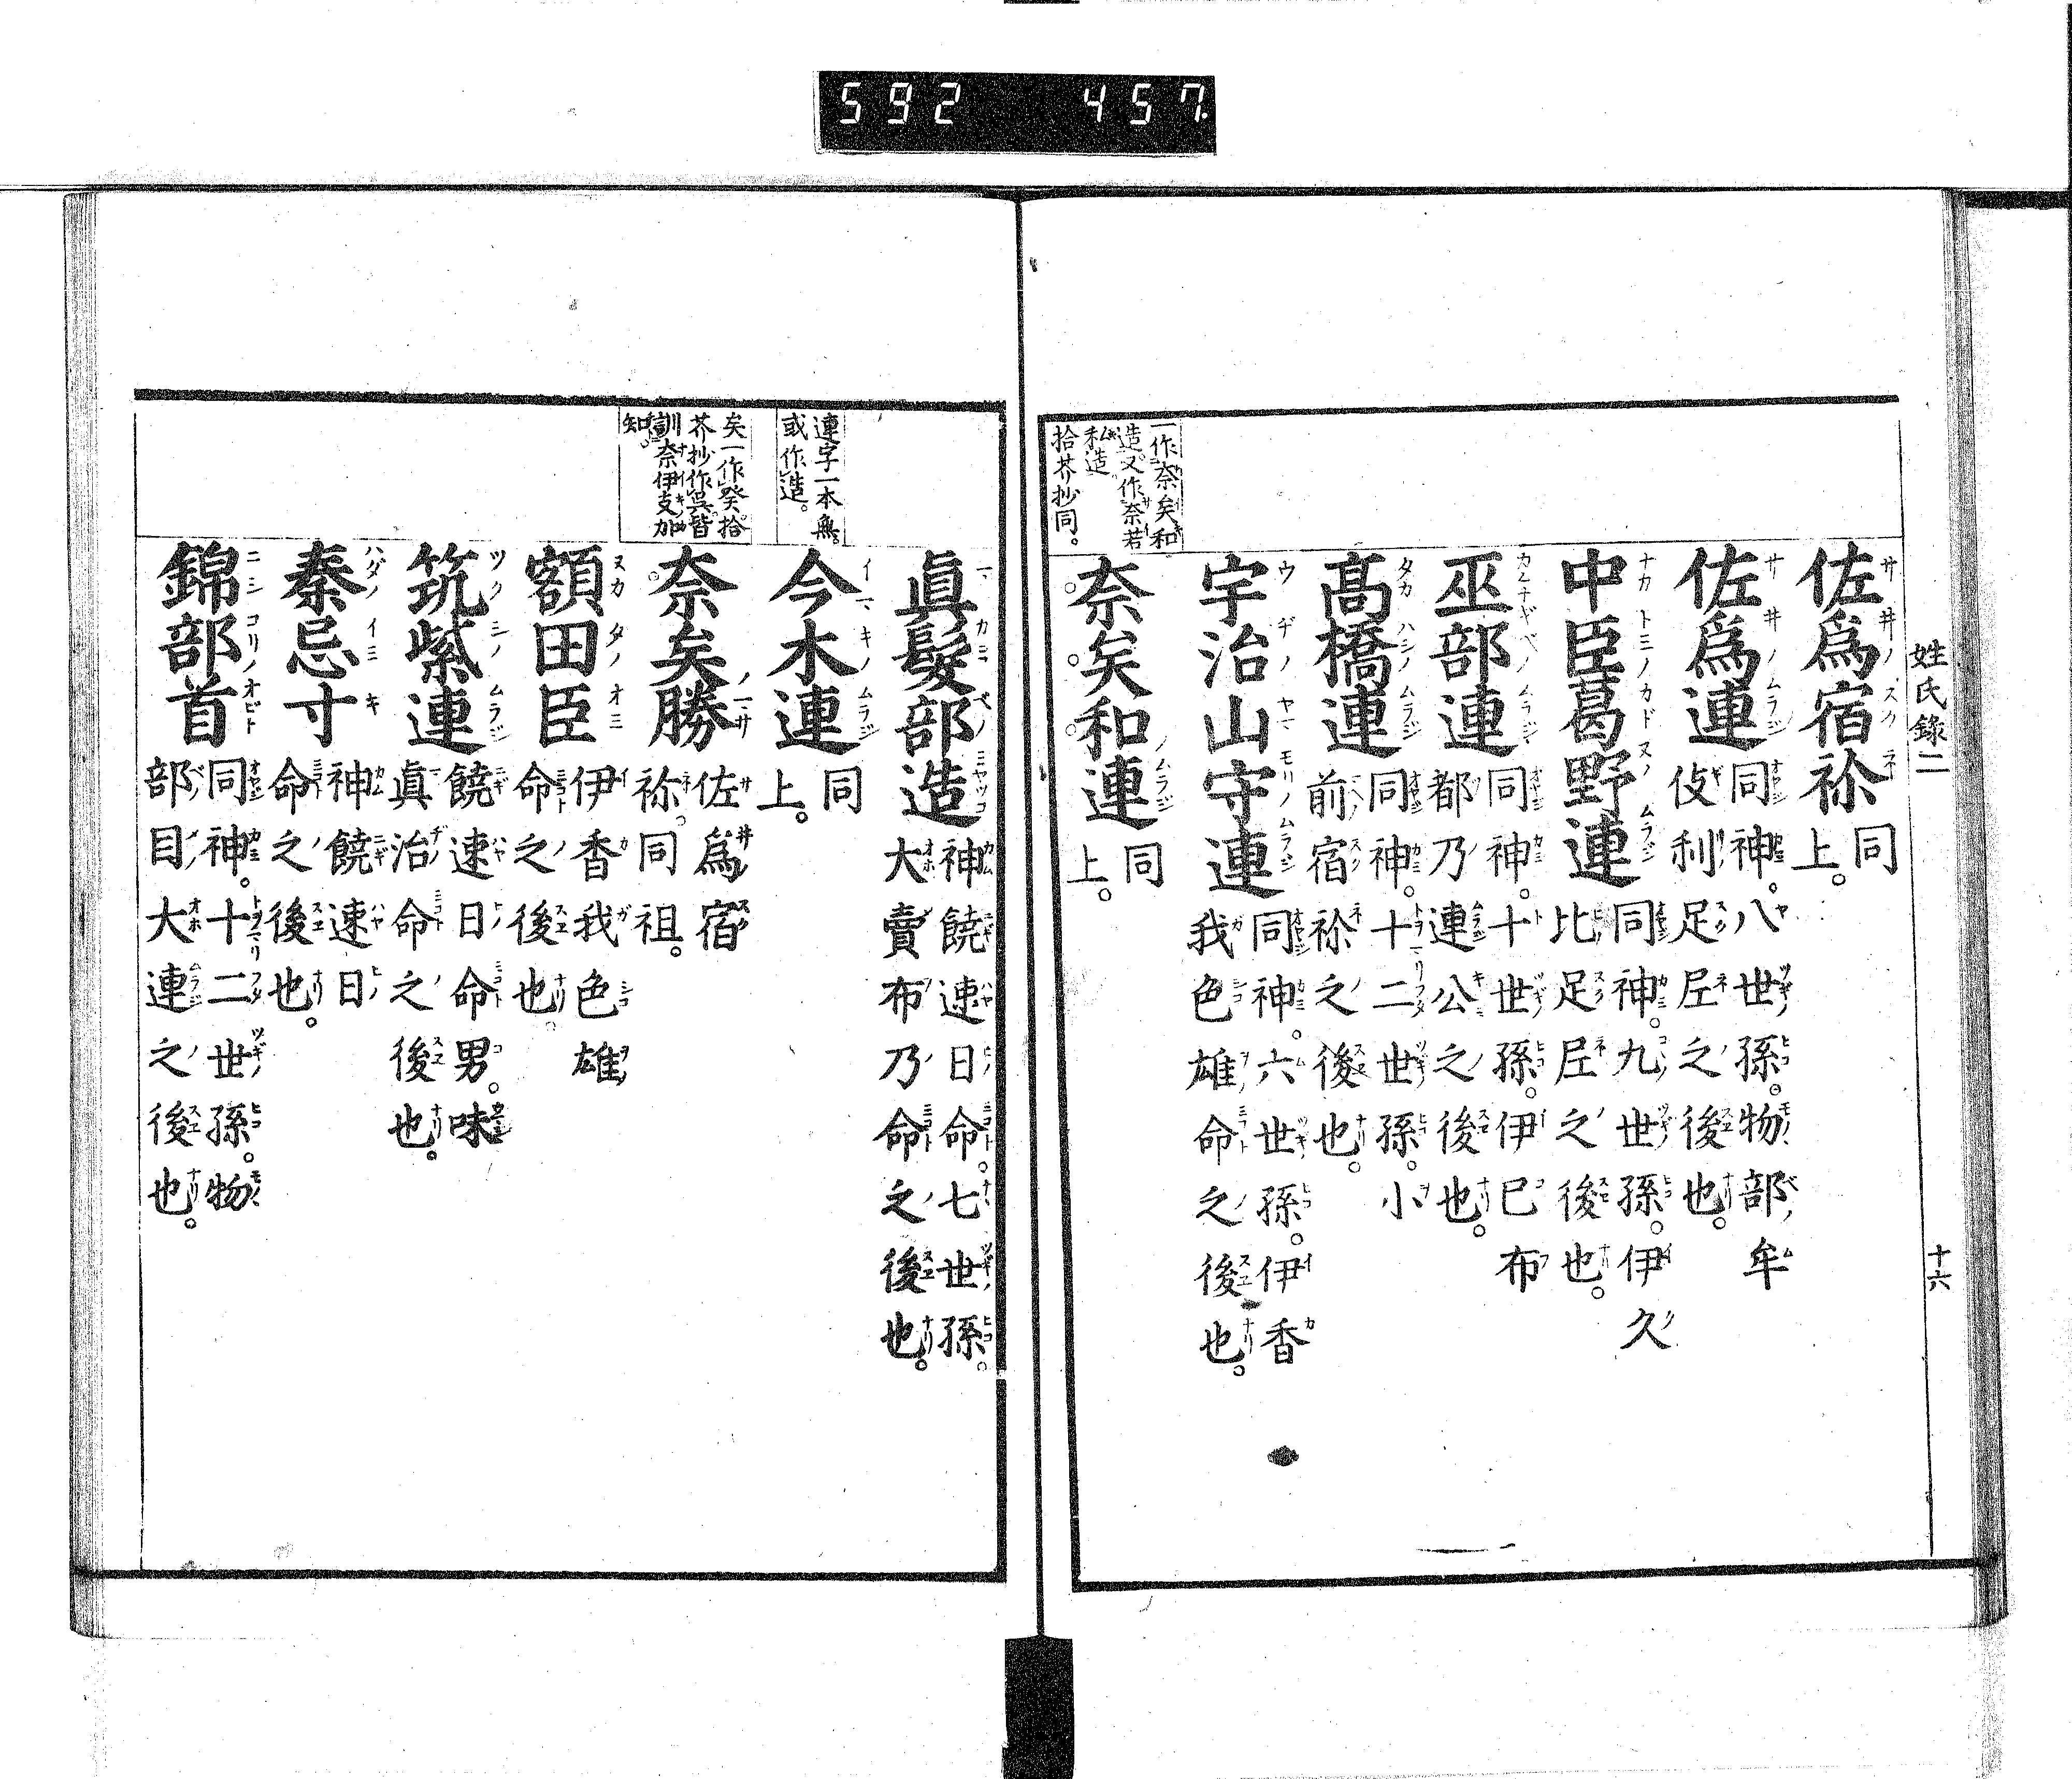 592 457
姓氏錄二
十六
佐爲宿祢同上。
佐爲連同神。八世孫。物部牟
伎利足尼之後也。
中臣葛野連同神。九世孫。伊久
比足尼之後也。
巫部連同神。十世孫。伊己布
都乃連公之後也。
髙橋連同神。十二世孫。小
前宿祢之後也。
宇治山守連同神。六世孫。伊香
我色雄命之後也。
一作奈矣和
造又作奈若
私造
拾芥抄同。
奈矣和連同上。
眞髮部造神饒速日命。七世孫。
大賣布乃命之後也。
連字一本無。
或作造。
今木連同上。
矣一作癸。拾
芥抄作呉。皆
訓奈伊支加
知。
奈矣勝佐爲宿
祢。同祖。
額田臣伊香我色雄
命之後也。
筑紫連饒速日命男。味
眞治命之後也。
秦忌寸神饒速日
命之後也。
錦部首同神。十二世孫。物
部目大連之後也。